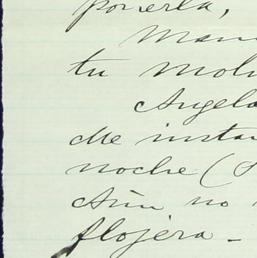 ponerla,
Mam
tu moli
Angela
Me insta
noche (
Aún no
flojera -